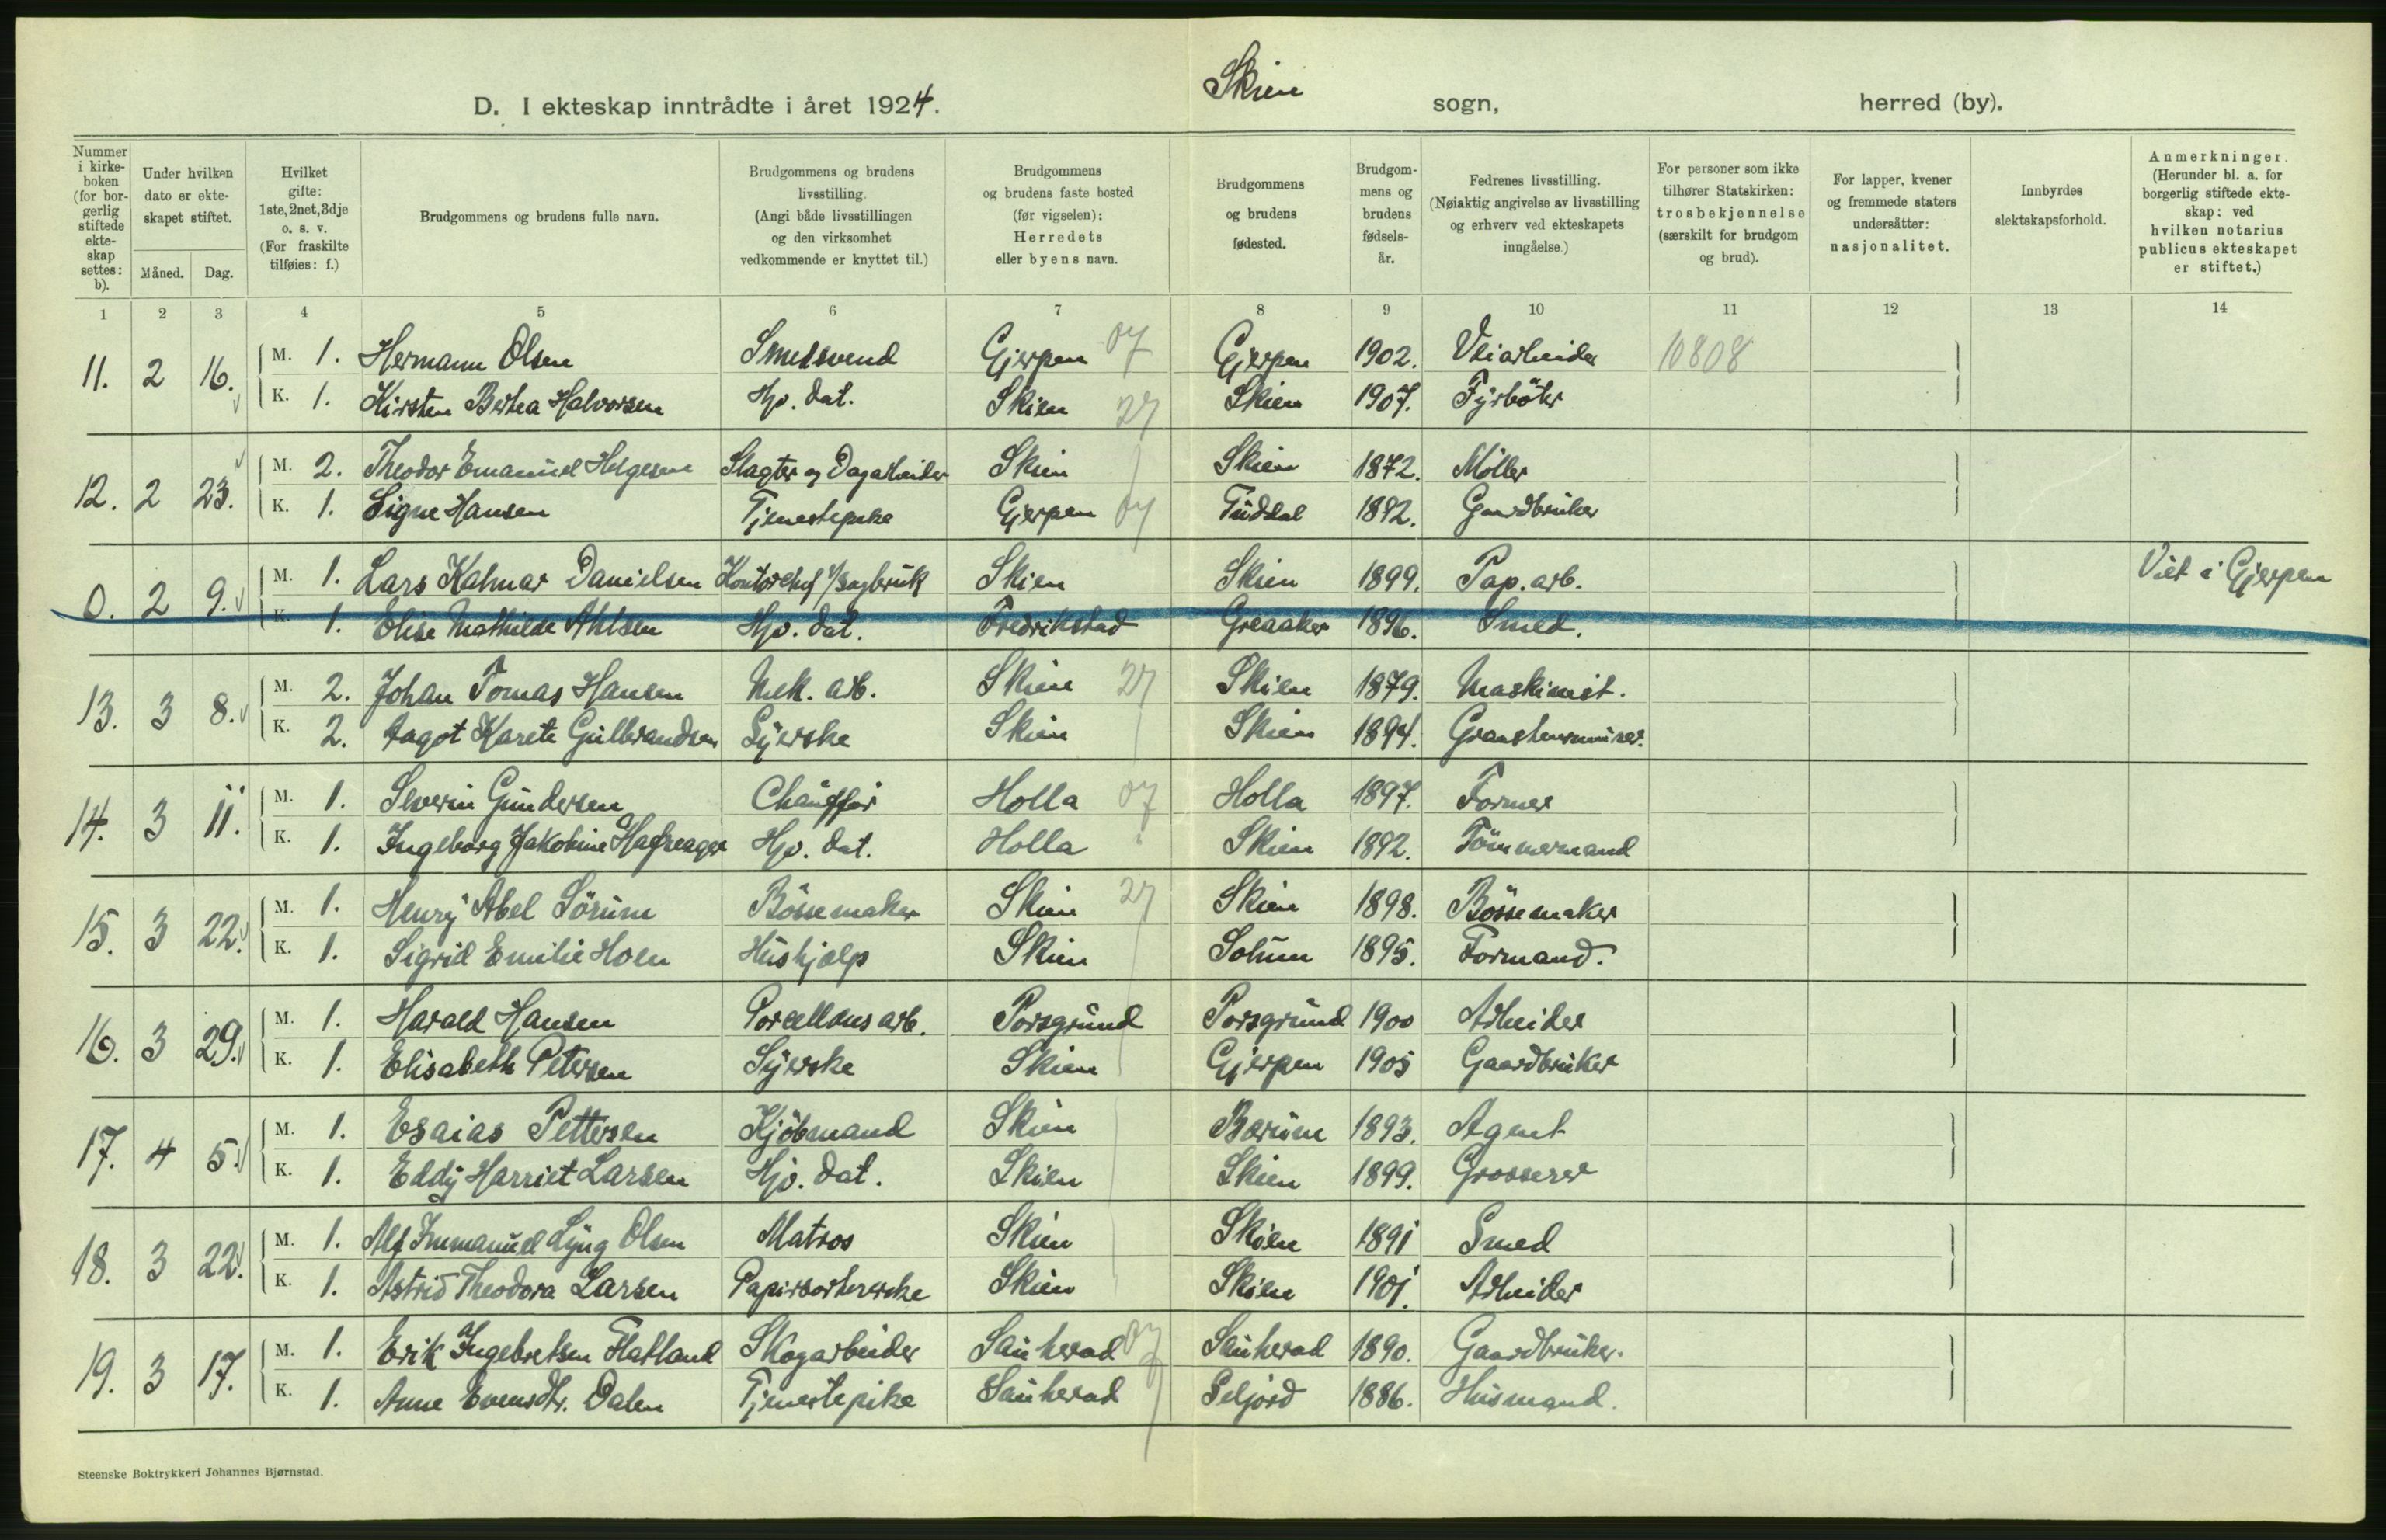 D. I ekteskap inntrådte i året 1924. Skien sogn, herred (by).
Nummer i kirkeboken (for borgerlig stiftede ekteskap settes: b).
Under hvilken dato er ekteskapet stiftet.
Måned. Dag.
Hvilket gifte: 1ste, 2net, 3dje o. s. v. (For fraskilte tilføies: f.)
Brudgommens og brudens fulle navn.
Brudgommens og brudens livsstilling. (Angi både livsstillingen og den virksomhet vedkommende er knyttet til.)
Brudgommens og brudens faste bosted (før vigselen): Herredets eller byens navn.
Brudgommens og brudens fødested.
Brudgommens og brudens fødselsår.
Fedrenes livsstilling. (Nøiaktig angivelse av livsstilling og erhverv ved ekteskapets inngåelse.)
For personer som ikke tilhører Statskirken: trosbekjennelse (særskilt for brudgom og brud).
For lapper, kvener og fremmede staters undersåtter: nasjonalitet.
Innbyrdes slektskapsforhold.
Anmerkninger. (Herunder bl. a. for borgerlig stiftede ekteskap: ved hvilken notarius publicus ekteskapet er stiftet.)
1 2 3 4 5 6 7 8 9 10 11 12 13 14
11. 2 16. M. 1. Hermann Olsen Smedsvend Gjerpen 07 Gjerpen 1902. Veiarbeider 10808
K. 1. Kirsten Berthea Halvorsen Hjv. dat. Skien 27 Skien 1907. Fyrbøter
12. 2 23. M. 2. Theodor Emanuel Helgesen Slagter og Dagarbeider Skien Skien 1872. Møller
K. 1. Signe Hansen Tjenestepike Gjerpen 07 Tuddal 1892. Gaardbruker
0. 2 9. M. 1. Lars Kalmar Danielsen Kontorchef v/ sagbruk Skien Skien 1899. Pap. arb. Viet i Gjerpen
K. 1. Elise Mathilde Ahlsen Hjv. dat. Fredrikstad Greaaker 1896. Smed.
13. 3 8. M. 2. Johan Tomas Hansen Mek. arb. Skien 27 Skien 1879. Maskinist.
K. 2. Aagot Karete Gulbrandsen Syerske Skien Skien 1894.
14. 3 11. M. 1. Severin Gundersen Chauffør Holla 07 Holla 1897. Former
K. 1. Ingeborg Jakobine Hafreager Hjv. dat. Holla Skien 1892. Tømmermand
15. 3 22. M. 1. Henry Abel Sørum Bøssemaker Skien 27 Skien 1898. Bøssemaker
K. 1. Sigrid Emilie Holen Hushjælp Skien Solum 1895. Formand.
16. 3 29. M. 1. Harald Hansen Porcellænsarb. Porsgrund Porsgrund 1900 Arbeider
K. 1. Elisabeth Petersen Syerske Skien Gjerpen 1905 Gaardbruker
17. 4 5. M. 1. Esaias Pettersen Kjøbmand Skien Bærum 1893. Agent
K. 1. Eddy Harriet Larsen Hjv. dat. Skien Skien 1899. Grosserer
18. 3 22. M. 1. Alf Immanuel Lyng Olsen Matros Skien Skien 1891 Smed
K. 1. Astrid Theodora Larsen Papirsortererske Skien Skien 1901. Arbeider
19. 3 17. M. 1. Erik Ingebretsen Flatland Skogarbeider Sauherad 07 Sauherad 1890. Gaardbruker.
K. 1. Anne Evensdtr. Dalen Tjenestepike Sauherad Seljord 1886. Husmand.
Steenske Boktrykkeri Johannes Bjørnstad.